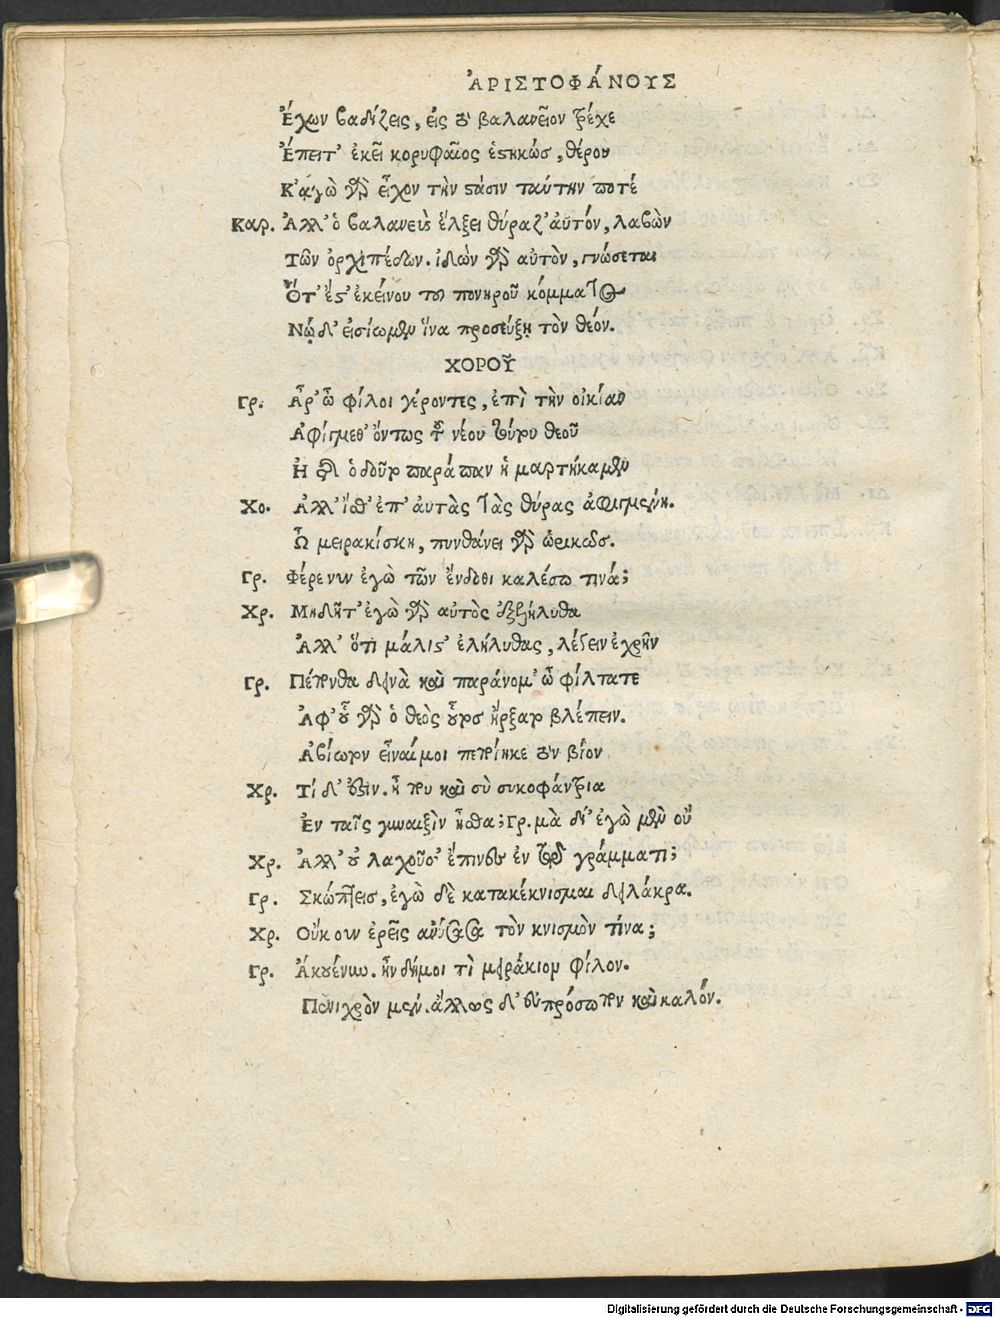 ἈΡΙΣΤΟΦΆΝΟΥΣ
Ἔχων βαδίζεις, εἰς τὸ βαλανεῖον τρέχε
Ἔπειτ' ἐκεῖ κορυφαῖος ἑστηκὼς, θέρου
Κ'ἀγὼ γὰρ εἶχον τὴν στάσιν ταύτην ποτέ
Καρ. Ἀλλ' ὁ βαλανεὺς ἕλξει θύραζ' αὐτόν, λαβὼν
Τῶν ὀρχιπέδων. ἰδὼν γὰρ αὐτὸν, γνώσεται
Ὅτ' ἔστ' ἐκείνου τοῦ πονηροῦ κόμματος
Νῲ δ' εἰσίωμεν ἵνα προσεύξῃ τὸν θεόν.
ΧΟΡΟΥ͂
Γρ. Ἆρ' ὦ φίλοι γέροντες, ἐπὶ τὴν οἰκίαν
Ἀφίγμεθ' ὄντως τοῦ νέου τούτου θεοῦ
Ἢ τῆς ὁδοῦ παράπαν ἡμαρτήκαμεν
Χο. Ἀλλ' ἴσθ' ἐπ' αὐτὰς τὰς θύρας ἀφιγμένη.
Ὦ μειρακίσκη, πυνθάνει γὰρ ὡρικῶς.
Γρ. Φέρε νυν ἐγὼ τῶν ἔνδοθι καλέσω τινά;
Χρ. Μὴ δῆτ' ἐγὼ γὰρ αὐτὸς ἐξελήλυθα
Ἀλλ' ὅτι μάλιστ' ἐλήλυθας, λέγειν ἐχρῆν
Γρ. Πέπονθα δεινὰ καὶ παράνομ' ὦ φίλτατε
Ἀφ' οὗ γὰρ ὁ θεὸς οὗτος ἤρξατο βλέπειν.
Ἀβίωτον εἶναί μοι πεποίηκε τὸν βίον
Χρ. Τί δ' ἔστιν. ἦ που καὶ σὺ συκοφάντρια
Ἐν ταῖς γυναιξὶν ἦσθα; Γρ. μὰ δί' ἐγὼ μὲν οὔ
Χρ. Ἀλλ' οὐ λαχοῦσ' ἔπινες ἐν τῷ γράμματι;
Γρ. Σκώπτεις, ἐγὼ δὲ κατακέκνισμαι δειλάκρα.
Χρ. Οὔκουν ἐρεῖς ἀνύσασα τὸν κνισμὸν τίνα;
Γρ. Ἄκουέ νυν. ἦν δή μοι τὶ μειράκιον φίλον.
Πενιχρὸν μέν. ἄλλως δ' εὐπρόσωπον καὶ καλόν.
Digitalisierung gefördert durch die Deutsche Forschungsgemeinschaft - DFG